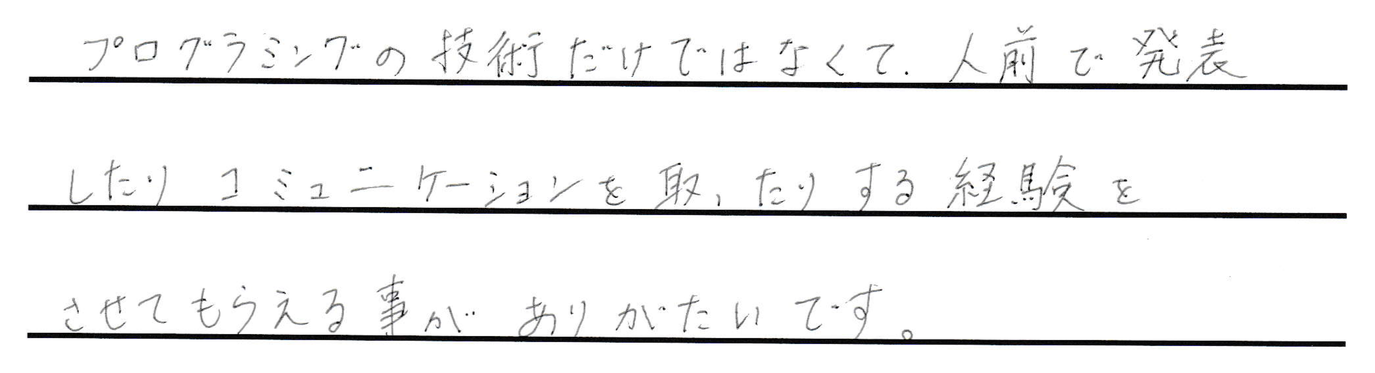 プログラミングの技術だけではなくて、人前で発表
したりコミュニケーションを取ったりする経験を
させてもらえる事がありがたいです。